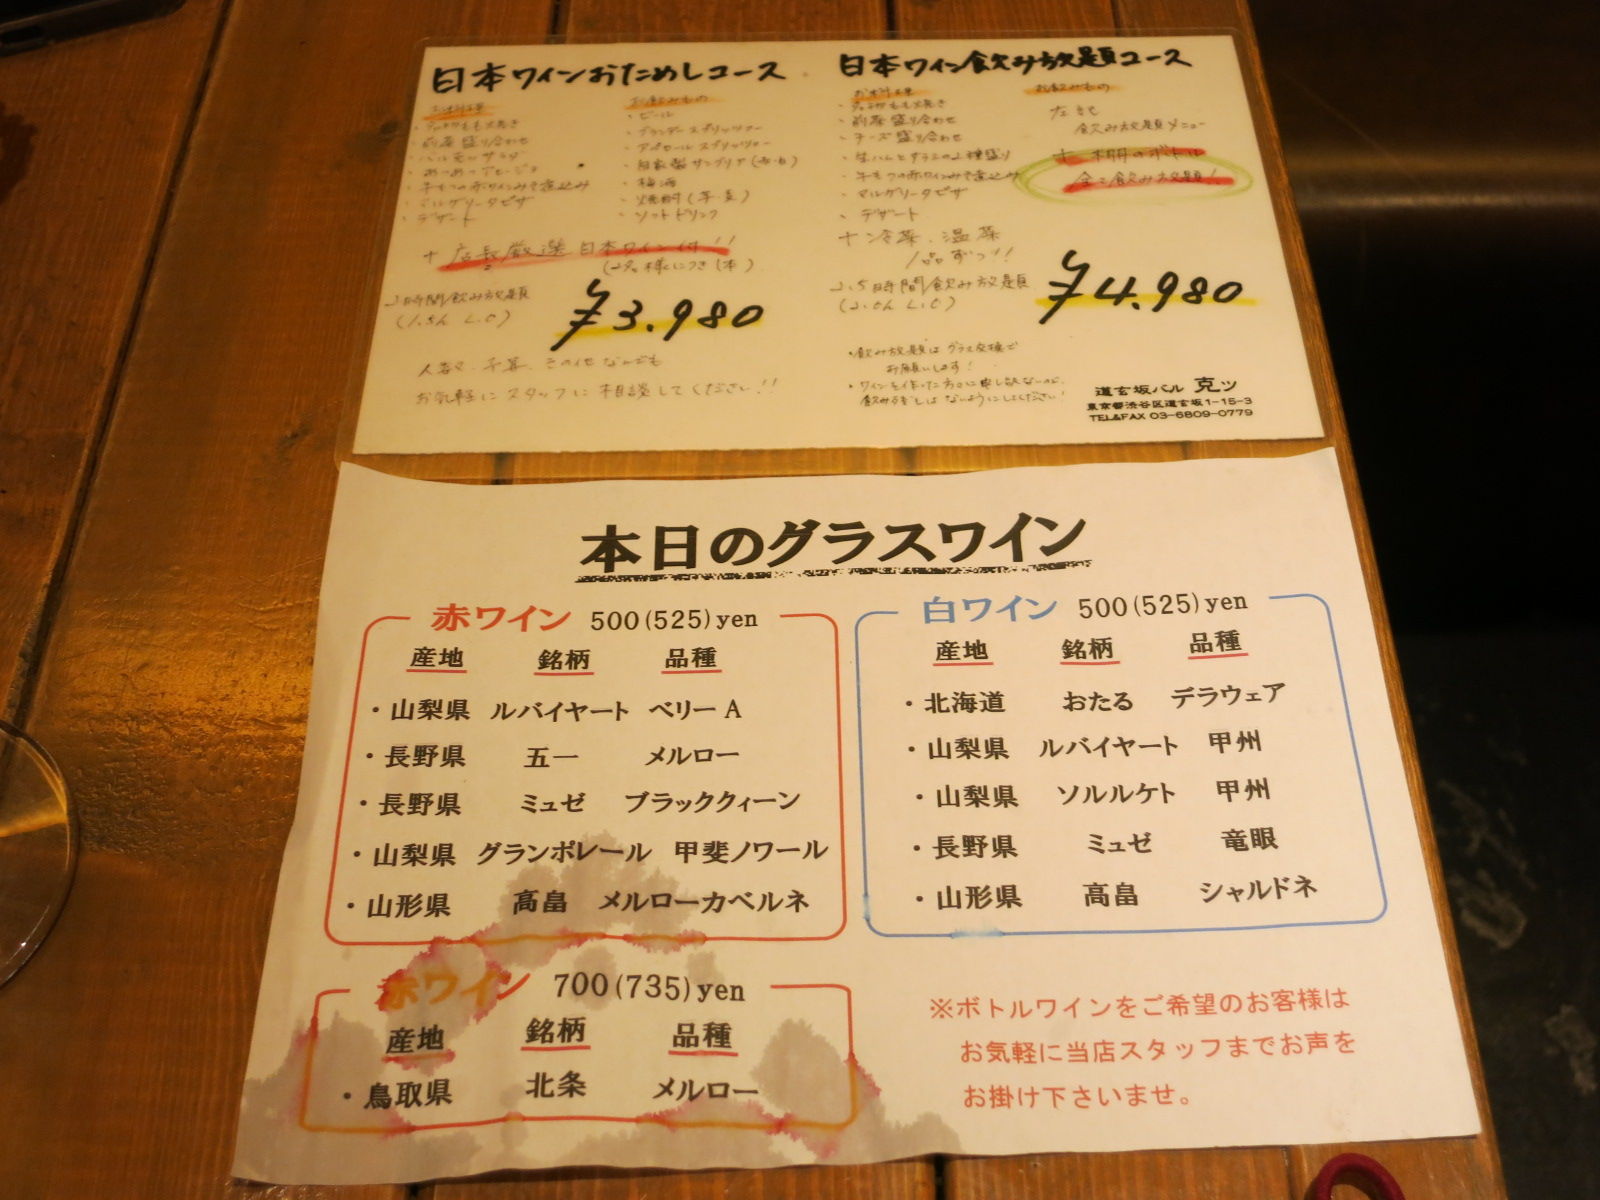 日本ワインおためしコース
お料理
前菜盛り合わせ
牛もつの赤ワインみそ煮込み
マルゲリータピザ
デザート
お飲みもの
・ビール
・アペロールスプリッツァー
・自家製サングリア(赤・白)
・梅酒
・焼酎(芋・麦)
・ソフトドリンク
+店長厳選 日本ワイン付!!
(2名様につき1本)
2時間飲み放題
(1.5h L.O)
¥3.980
人数、予算、その他なんでも
お気軽にスタッフに相談してください!!
日本ワイン飲み放題コース
お料理
前菜盛り合わせ
・チーズ盛り合わせ
・生ハムとサラミの2種盛り
・牛もつの赤ワインみそ煮込み
・マルゲリータピザ
・デザート
+冷菜、温菜
1品ずつ!!
2.5時間飲み放題
(2.0h L.O)
お飲みもの
左記
飲み放題メニュー
+ 棚のボトル
全て飲み放題!
¥4.980
・飲み放題はグラス交換で
お願いします!
・ワインを作った方々に申し訳ないので、
飲み残しはないようにしてください!
道玄坂バル 克ッ
東京都渋谷区道玄坂1-15-3
TEL&FAX 03-6809-0779
本日のグラスワイン
赤ワイン 500(525)yen
産地 銘柄 品種
・山梨県 ルバイヤート ベリーA
・長野県 五一 メルロー
・長野県 ミュゼ ブラッククィーン
・山梨県 グランポレール 甲斐ノワール
・山形県 高畠 メルローカベルネ
白ワイン 500(525)yen
産地 銘柄 品種
・北海道 おたる デラウェア
・山梨県 ルバイヤート 甲州
・山梨県 ソルルケト 甲州
・長野県 ミュゼ 竜眼
・山形県 高畠 シャルドネ
赤ワイン 700(735)yen
産地 銘柄 品種
・鳥取県 北条 メルロー
※ボトルワインをご希望のお客様は
お気軽に当店スタッフまでお声を
お掛け下さいませ。